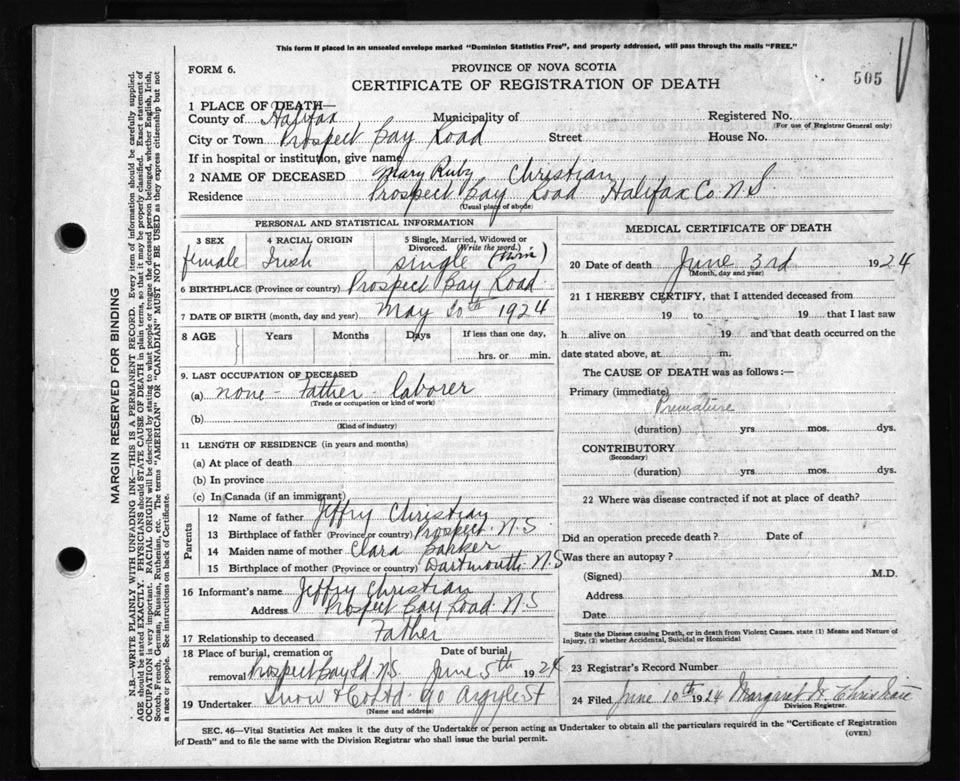 This form if placed in an unsealed envelope marked "Dominion Statistics Free", and properly addressed, will pass through the mails "FREE."
FORM 6.
PROVINCE OF NOVA SCOTIA
505
CERTIFICATE OF REGISTRATION OF DEATH
1 PLACE OF DEATH—
County of Halifax Municipality of Registered No.
(For use of Registrar General only)
City or Town Prospect Bay Road Street House No.
If in hospital or institution, give name
2 NAME OF DECEASED Mary Ruby Christian
Residence Prospect Bay Road Halifax Co. N.S.
(Usual place of abode)
PERSONAL AND STATISTICAL INFORMATION
3 SEX 4 RACIAL ORIGIN 5 Single, Married, Widowed or Divorced. (Write the word.)
female Irish single (twin)
6 BIRTHPLACE (Province or country) Prospect Bay Road
7 DATE OF BIRTH (month, day and year) May 20th 1924
8 AGE Years Months Days If less than one day,
hrs. or min.
9. LAST OCCUPATION OF DECEASED
(a) none - Father - laborer
(Trade or occupation or kind of work)
(b)
(Kind of industry)
11 LENGTH OF RESIDENCE (in years and months)
(a) At place of death
(b) In province
(c) In Canada (if an immigrant)
Parents
12 Name of father Jeffry Christian
13 Birthplace of father (Province or country) Prospect N.S
14 Maiden name of mother Clara Barker
15 Birthplace of mother (Province or country) Dartmouth N.S
16 Informant's name Jeffry Christian
Address Prospect Bay Road N.S
17 Relationship to deceased Father
18 Place of burial, cremation or Date of burial
removal Prospect Bay Rd. N.S. June 5th 1924
19 Undertaker Snow & Co Ltd 90 Argyle St
(Name and address)
MEDICAL CERTIFICATE OF DEATH
20 Date of death June 3rd 1924
(Month, day and year)
21 I HEREBY CERTIFY, that I attended deceased from
19 to 19 that I last saw
h alive on 19 and that death occurred on the
date stated above, at m.
The CAUSE OF DEATH was as follows:—
Primary (immediate)
Premature
(duration) yrs. mos. dys.
CONTRIBUTORY
(Secondary)
(duration) yrs. mos. dys.
22 Where was disease contracted if not at place of death?
Did an operation precede death? Date of
Was there an autopsy?
(Signed) M.D.
Address
Date
State the Disease causing Death, or in death from Violent Causes, state (1) Means and Nature of
Injury, (2) whether Accidental, Suicidal or Homicidal
23 Registrar's Record Number
24 Filed June 10th 1924 Margaret H. Christian
Division Registrar.
SEC. 46—Vital Statistics Act makes it the duty of the Undertaker or person acting as Undertaker to obtain all the particulars required in the "Certificate of Registration
of Death" and to file the same with the Division Registrar who shall issue the burial permit.
(OVER)
MARGIN RESERVED FOR BINDING
N.B.—WRITE PLAINLY WITH UNFADING INK—THIS IS A PERMANENT RECORD. Every item of information should be carefully supplied.
AGE should be stated EXACTLY. PHYSICIANS should STATE CAUSE OF DEATH in plain terms, so that it may be properly classified. Exact statement of
OCCUPATION is very important. RACIAL ORIGIN will be described by stating to what people or tongue the deceased person belonged, whether English, Irish,
Scotch, French, German, Russian, Ruthenian, etc. The terms "AMERICAN" OR "CANADIAN" MUST NOT BE USED as they express citizenship but not
a race or people. See instructions on back of Certificate.